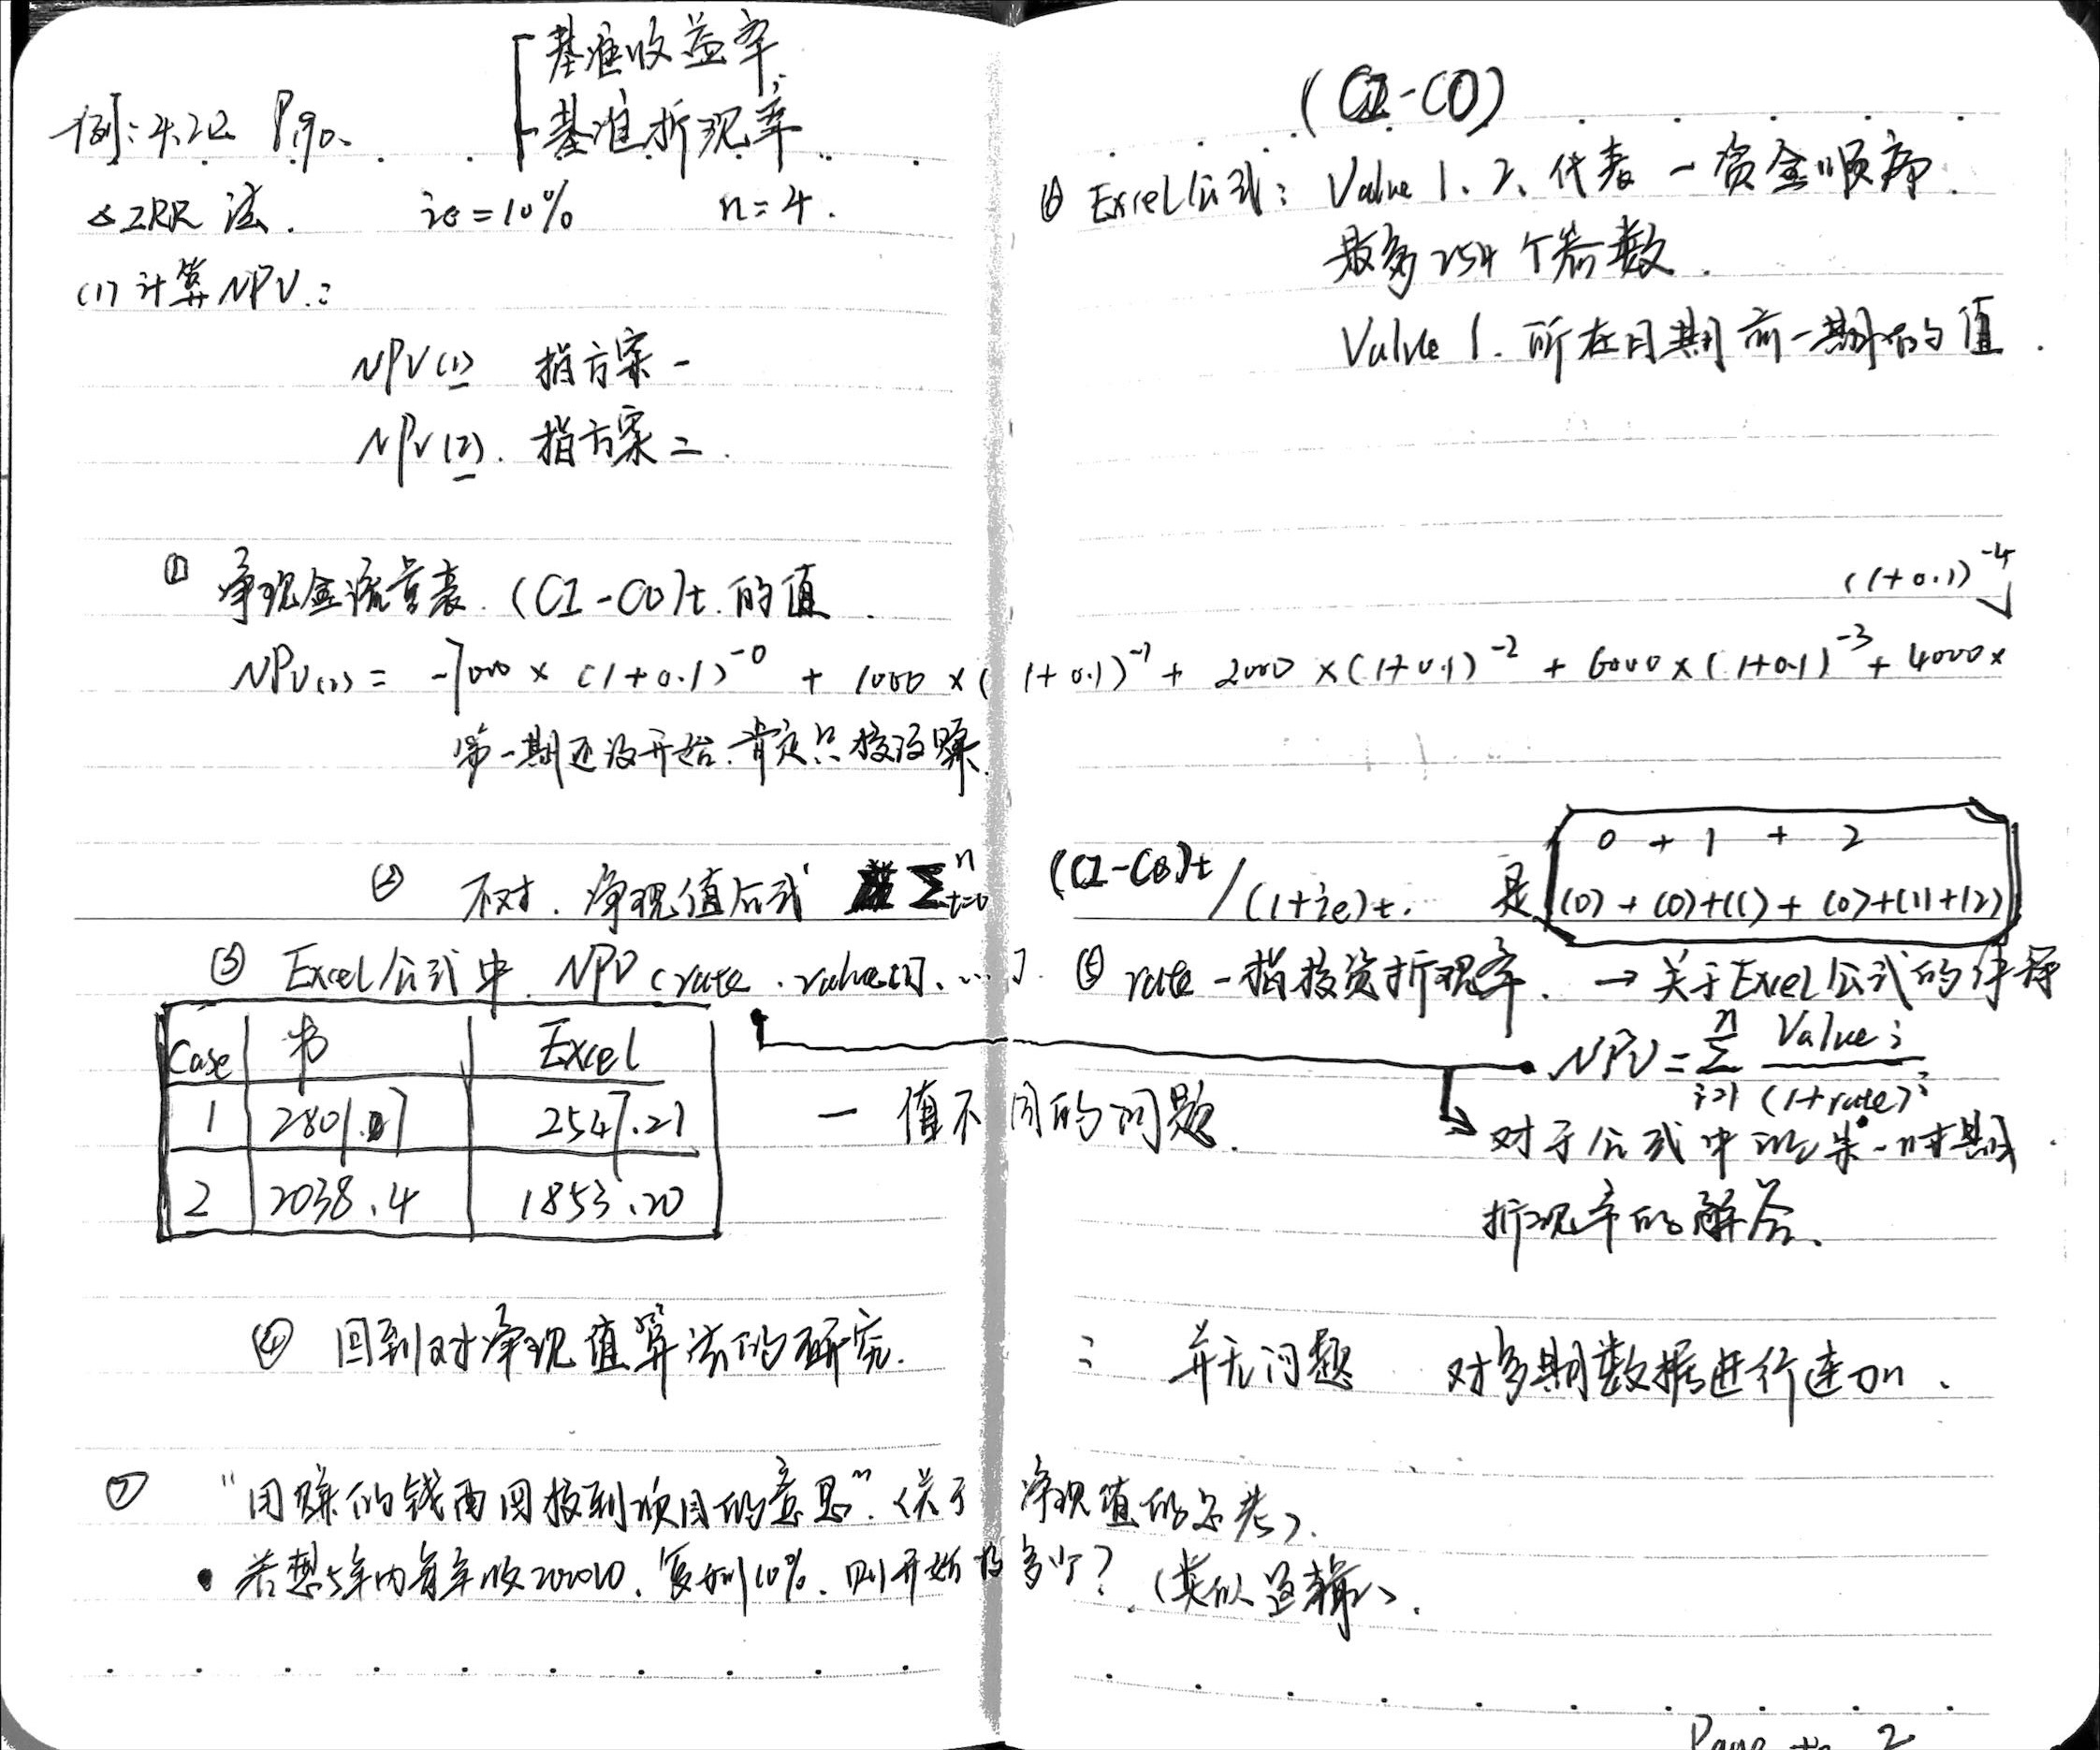 基准收益率
例: 4.22 P190.
基准折现率
△IRR 法. ic=10% n=4.
(1) 计算NPV.:
NPV(1) 指方案一
NPV(2). 指方案二.
① 净现金流量表. (CI-CO)t. 的值.
NPV(2) = -7000 × (1+0.1)^-0 + 1000 × (1+0.1)^-1 + 2000 × (1+0.1)^-2 + 6000 × (1+0.1)^-3 + 4000 ×
(1+0.1)^-4
第一期还没开始. 肯定只投没赚.
② 不对. 净现值公式 Σ n t=0 (CI-CO)t/(1+ic)t. 是
0 + 1 + 2
(0) + (0)+(1) + (0)+(1)+(2)
③ Excel公式中. NPV (rate. value[1]. ...).
Case 书 Excel
1 2801.07 2547.21
2 2038.4 1853.20
一 值不同的问题.
④ 回到对净现值算法的研究.
⑦ “用赚的钱再回投到项目的意思”. (关于净现值的思考).
• 若想5年内每年收20000. 复利10%. 则开始投多少? (类似逻辑).
(CI-CO)
⑥ Excel公式: Value 1、2、代表一资金顺序.
最多254个参数.
Value 1. 所在日期前一期的值.
⑤ rate 一指投资折现率. → 关于Excel公式的
NPV = Σ n i=1 Value i / (1+rate)^i
对于公式中的某一时期
折现率的解答.
: 并无问题 对多期数据进行连加.
2